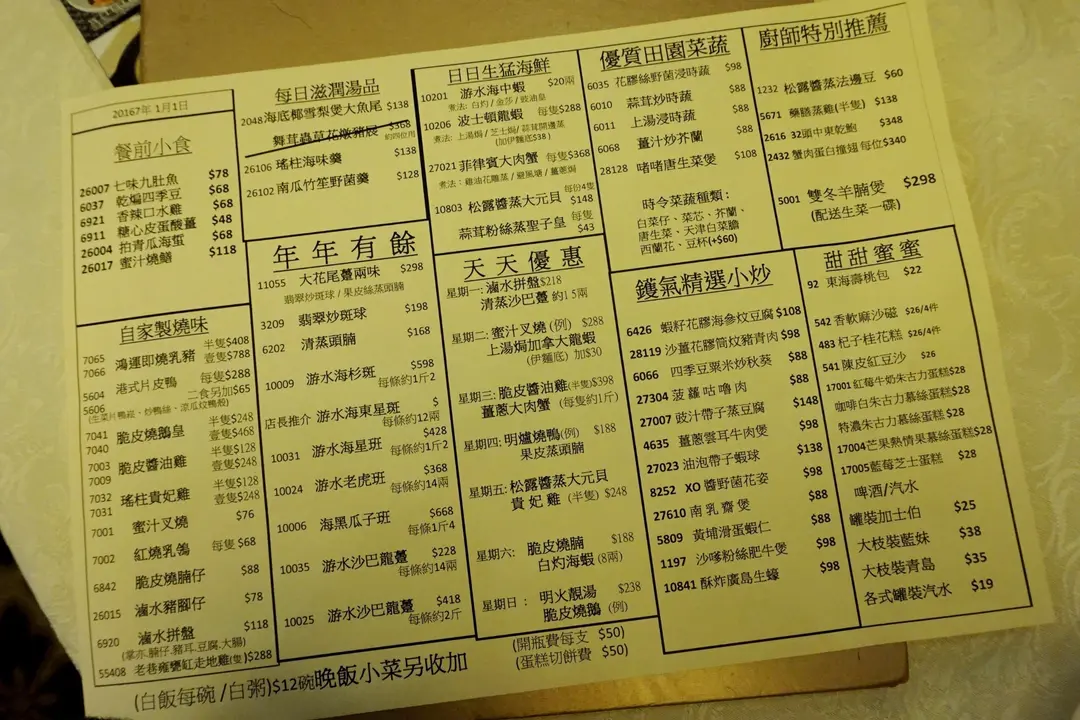 20167年 1月1日
餐前小食
26007 七味九肚魚 $78
6037 乾煸四季豆 $68
6921 香辣口水雞 $68
6911 糖心皮蛋酸薑 $48
26004 拍青瓜海蜇 $68
26017 蜜汁燒鱔 $118
自家製燒味
7065 鴻運即燒乳豬 半隻$408
7066 壹隻$788
5604 港式片皮鴨 每隻$288
5606 二食另加$65
(生菜片鴨崧、炒鴨絲、涼瓜炆鴨殼)
7041 脆皮燒鵝皇 半隻$248
7040 壹隻$468
7003 脆皮醬油雞 半隻$128
7009 壹隻$248
7032 瑤柱貴妃雞 半隻$128
7031 壹隻$248
7001 蜜汁叉燒 $76
7002 紅燒乳鴿 每隻 $68
6842 脆皮燒腩仔 $88
26015 滷水豬腳仔 $78
6920 滷水拼盤 $118
(掌亦.腩仔.豬耳.豆腐.大腸)
55408 老巷雍甕缸走地雞(隻)$288
每日滋潤湯品
2048 海底椰雪梨煲大魚尾 $138
舞茸蟲草花燉豬𦟌 $368
約四位用
26106 瑤柱海味羹 $138
26102 南瓜竹笙野菌羹 $128
年年有餘
11055 大花尾躉兩味 $298
翡翠炒斑球 / 果皮絲蒸頭腩
3209 翡翠炒斑球 $198
6202 清蒸頭腩 $168
10009 游水海杉斑 $598
每條約1斤2
店長推介 游水海東星斑 $
每條約12兩
10031 游水海星斑 $428
每條約1斤2
10024 游水老虎班 $368
每條約14兩
10006 海黑瓜子班 $668
每條1斤4
10035 游水沙巴龍躉 $228
每條約14兩
10025 游水沙巴龍躉 $418
每條約2斤
日日生猛海鮮
10201 游水海中蝦 $20兩
煮法: 白灼 / 金莎 / 豉油皇
10206 波士頓龍蝦 每隻$288
煮法: 上湯焗/ 芝士焗/ 蒜茸開邊蒸
(加伊麵底$38 )
27021 菲律賓大肉蟹 每隻$368
煮法：雞油花雕蒸 / 避風塘 / 薑蔥焗
10803 松露醬蒸大元貝 每份4隻
$148
蒜茸粉絲蒸聖子皇 每隻
$43
天天優惠
星期一: 滷水拼盤$218
清蒸沙巴躉 約1 5兩
星期二: 蜜汁叉燒 (例) $288
上湯焗加拿大龍蝦
(伊麵底) 加$30
星期三: 脆皮醬油雞(半隻)$398
薑蔥大肉蟹 (每隻約1斤)
星期四: 明爐燒鴨(例) $188
果皮蒸頭腩
星期五: 松露醬蒸大元貝
貴妃雞 (半隻) $248
星期六: 脆皮燒腩 $188
白灼海蝦 (8兩)
星期日 : 明火靚湯 $238
脆皮燒鵝 (例)
優質田園菜蔬
6035 花膠絲野菌浸時蔬 $98
6010 蒜茸炒時蔬 $88
6011 上湯浸時蔬 $88
6068 薑汁炒芥蘭 $88
28128 啫啫唐生菜煲 $108
時令菜蔬種類：
白菜仔、菜芯、芥蘭、
唐生菜、天津白菜膽
西蘭花、豆杯(+$60)
鑊氣精選小炒
6426 蝦籽花膠海參炆豆腐 $108
28119 沙薑花膠筒炆豬青肉 $98
6066 四季豆粟米炒秋葵 $88
27304 菠蘿咕嚕肉 $88
27007 豉汁帶子蒸豆腐 $148
4635 薑蔥雲耳牛肉煲 $98
27023 油泡帶子蝦球 $138
8252 XO 醬野菌花姿 $98
27610 南乳齋煲 $88
5809 黃埔滑蛋蝦仁 $88
1197 沙嗲粉絲肥牛煲 $98
10841 酥炸廣島生蠔 $98
廚師特別推薦
1232 松露醬蒸法邊豆 $60
5671 藥膳蒸雞(半隻) $138
2616 32頭中東乾鮑 $348
2432 蟹肉蛋白撞翅 每位$340
5001 雙冬羊腩煲 $298
(配送生菜一碟)
甜甜蜜蜜
92 東海壽桃包 $22
542 香軟麻沙磯 $26/4件
483 杞子桂花糕 $26/4件
541 陳皮紅豆沙 $26
17001 紅莓牛奶朱古力蛋糕$28
咖啡白朱古力慕絲蛋糕$28
特濃朱古力慕絲蛋糕 $28
17004 芒果熱情果慕絲蛋糕$28
17005 藍莓芝士蛋糕 $28
啤酒/汽水
罐裝加士伯 $25
大枝裝藍妹 $38
大枝裝青島 $35
各式罐裝汽水 $19
(白飯每碗 /白粥)$12碗 晚飯小菜另收加
(開瓶費每支 $50)
(蛋糕切餅費 $50)